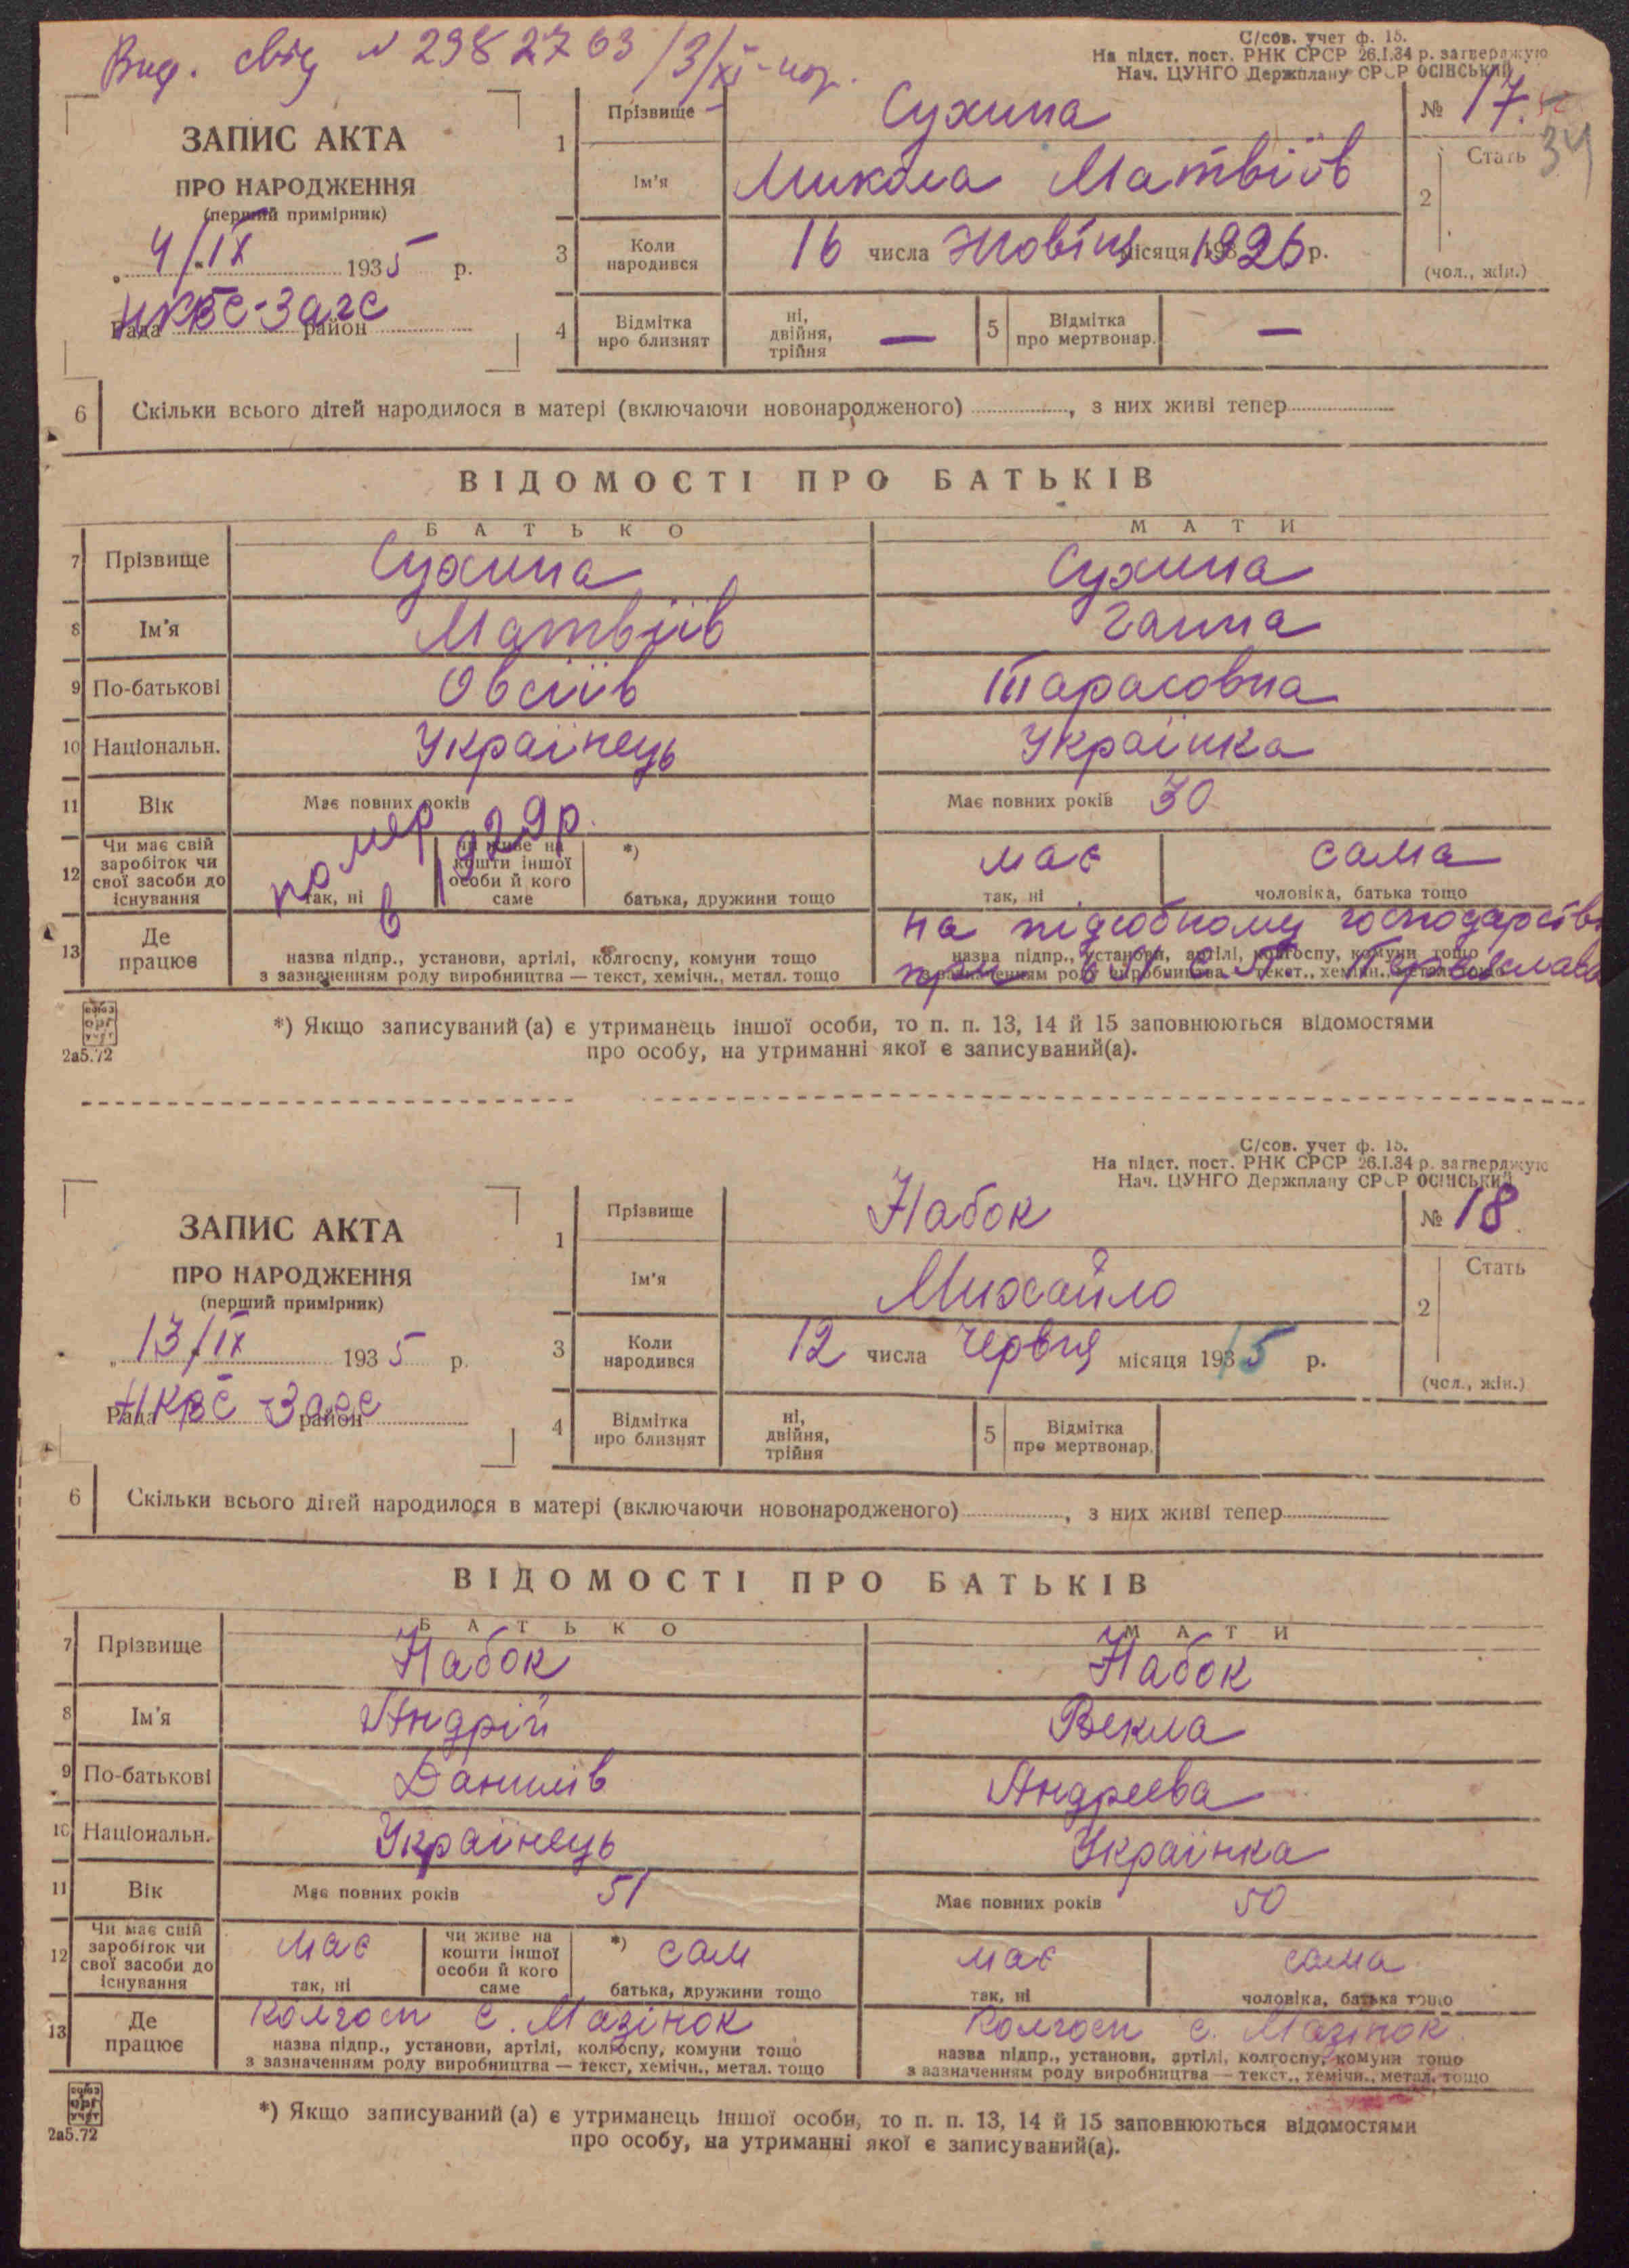 Вид. свід № 2982763 /3/XI-
С/сов. учет ф. 15.
На підст. пост. РНК СРСР 26.I.34 р. затверджую
Нач. ЦУНГО Держплану СРСР ОСІНСЬКИЙ
ЗАПИС АКТА
ПРО НАРОДЖЕННЯ
(перший примірник)
„ 4/IX 1935 р.
Рада НКВС-Загс район
1 Прізвище Сухина
№ 17.
34
Ім'я Микола Матвіїв
2 Стать
(чол., жін.)
3 Коли народився 16 числа Жовтня місяця 1926 р.
4 Відмітка про близнят ні, двійня, трійня —
5 Відмітка про мертвонар. —
6 Скільки всього дітей народилося в матері (включаючи новонародженого) ............, з них живі тепер............
ВІДОМОСТІ ПРО БАТЬКІВ
БАТЬКО МАТИ
7 Прізвище Сухина Сухина
8 Ім'я Матвіїв Ганна
9 По-батькові Овсіїв Тарасовна
10 Національн. Українець Українка
11 Вік Має повних років Має повних років 30
помер в 1929р.
12 Чи має свій заробіток чи свої засоби до існування
так, ні
чи живе на кошти іншої особи й кого саме
*) батька, дружини тощо
має
так, ні
сама
чоловіка, батька тощо
13 Де працює
назва підпр., установи, артілі, колгоспу, комуни тощо
з зазначенням роду виробництва — текст, хемічн., метал. тощо
на підсобному господарстві
при
назва підпр., установи, артілі, колгоспу, комуни тощо
з зазначенням роду виробництва — текст., хемічн., метал. тощо
союз
орг
учет
2а5.72
*) Якщо записуваний (а) є утриманець іншої особи, то п. п. 13, 14 й 15 заповнюються відомостями
про особу, на утриманні якої є записуваний(а).
С/сов. учет ф. 15.
На підст. пост. РНК СРСР 26.I.34 р. затверджую
Нач. ЦУНГО Держплану СРСР ОСІНСЬКИЙ
ЗАПИС АКТА
ПРО НАРОДЖЕННЯ
(перший примірник)
„ 13/IX 1935 р.
Рада НКВС-Загс район
1 Прізвище Набок
№ 18
Ім'я Михайло
2 Стать
(чол., жін.)
3 Коли народився 12 числа Червня місяця 1935 р.
4 Відмітка про близнят ні, двійня, трійня
5 Відмітка про мертвонар.
6 Скільки всього дітей народилося в матері (включаючи новонародженого) ............, з них живі тепер............
ВІДОМОСТІ ПРО БАТЬКІВ
БАТЬКО МАТИ
7 Прізвище Набок Набок
8 Ім'я Андрій Векла
9 По-батькові Данилів Андреева
10 Національн. Українець Українка
11 Вік Має повних років 51 Має повних років 50
12 Чи має свій заробіток чи свої засоби до існування
має
так, ні
чи живе на кошти іншої особи й кого саме
*) сам
батька, дружини тощо
має
так, ні
сама
чоловіка, батька тощо
13 Де працює
Колгосп с. Мазінок
назва підпр., установи, артілі, колгоспу, комуни тощо
з зазначенням роду виробництва — текст, хемічн., метал. тощо
Колгосп с. Мазінок
назва підпр., установи, артілі, колгоспу, комуни тощо
з зазначенням роду виробництва — текст., хемічн., метал. тощо
союз
орг
учет
2а5.72
*) Якщо записуваний (а) є утриманець іншої особи, то п. п. 13, 14 й 15 заповнюються відомостями
про особу, на утриманні якої є записуваний(а).